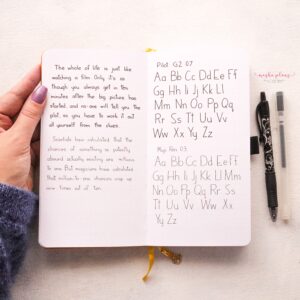 The whole of life is just like
watching a film. Only it's as
though you always get in ten
minutes after the big picture has
started, and no-one will tell you the
plot, so you have to work it out
all yourself from the clues.
Scientists have calculated that the
chances of something so patently
absurd actually existing are millions
to one. But magicians have calculated
that million-to-one chances crop up
nine times out of ten.
Pilot G2 07
Aa Bb Cc Dd Ee Ff
Gg Hh Ii Jj Kk Ll
Mm Nn Oo Pp Qq
Rr Ss Tt Uu Vv
Ww Xx Yy Zz
Muji Pen 03
Aa Bb Cc Dd Ee Ff
Gg Hh Ii Jj Kk Ll Mm
Nn Oo Pp Qq Rr Ss
Tt Uu Vv Ww Xx
Yy Zz